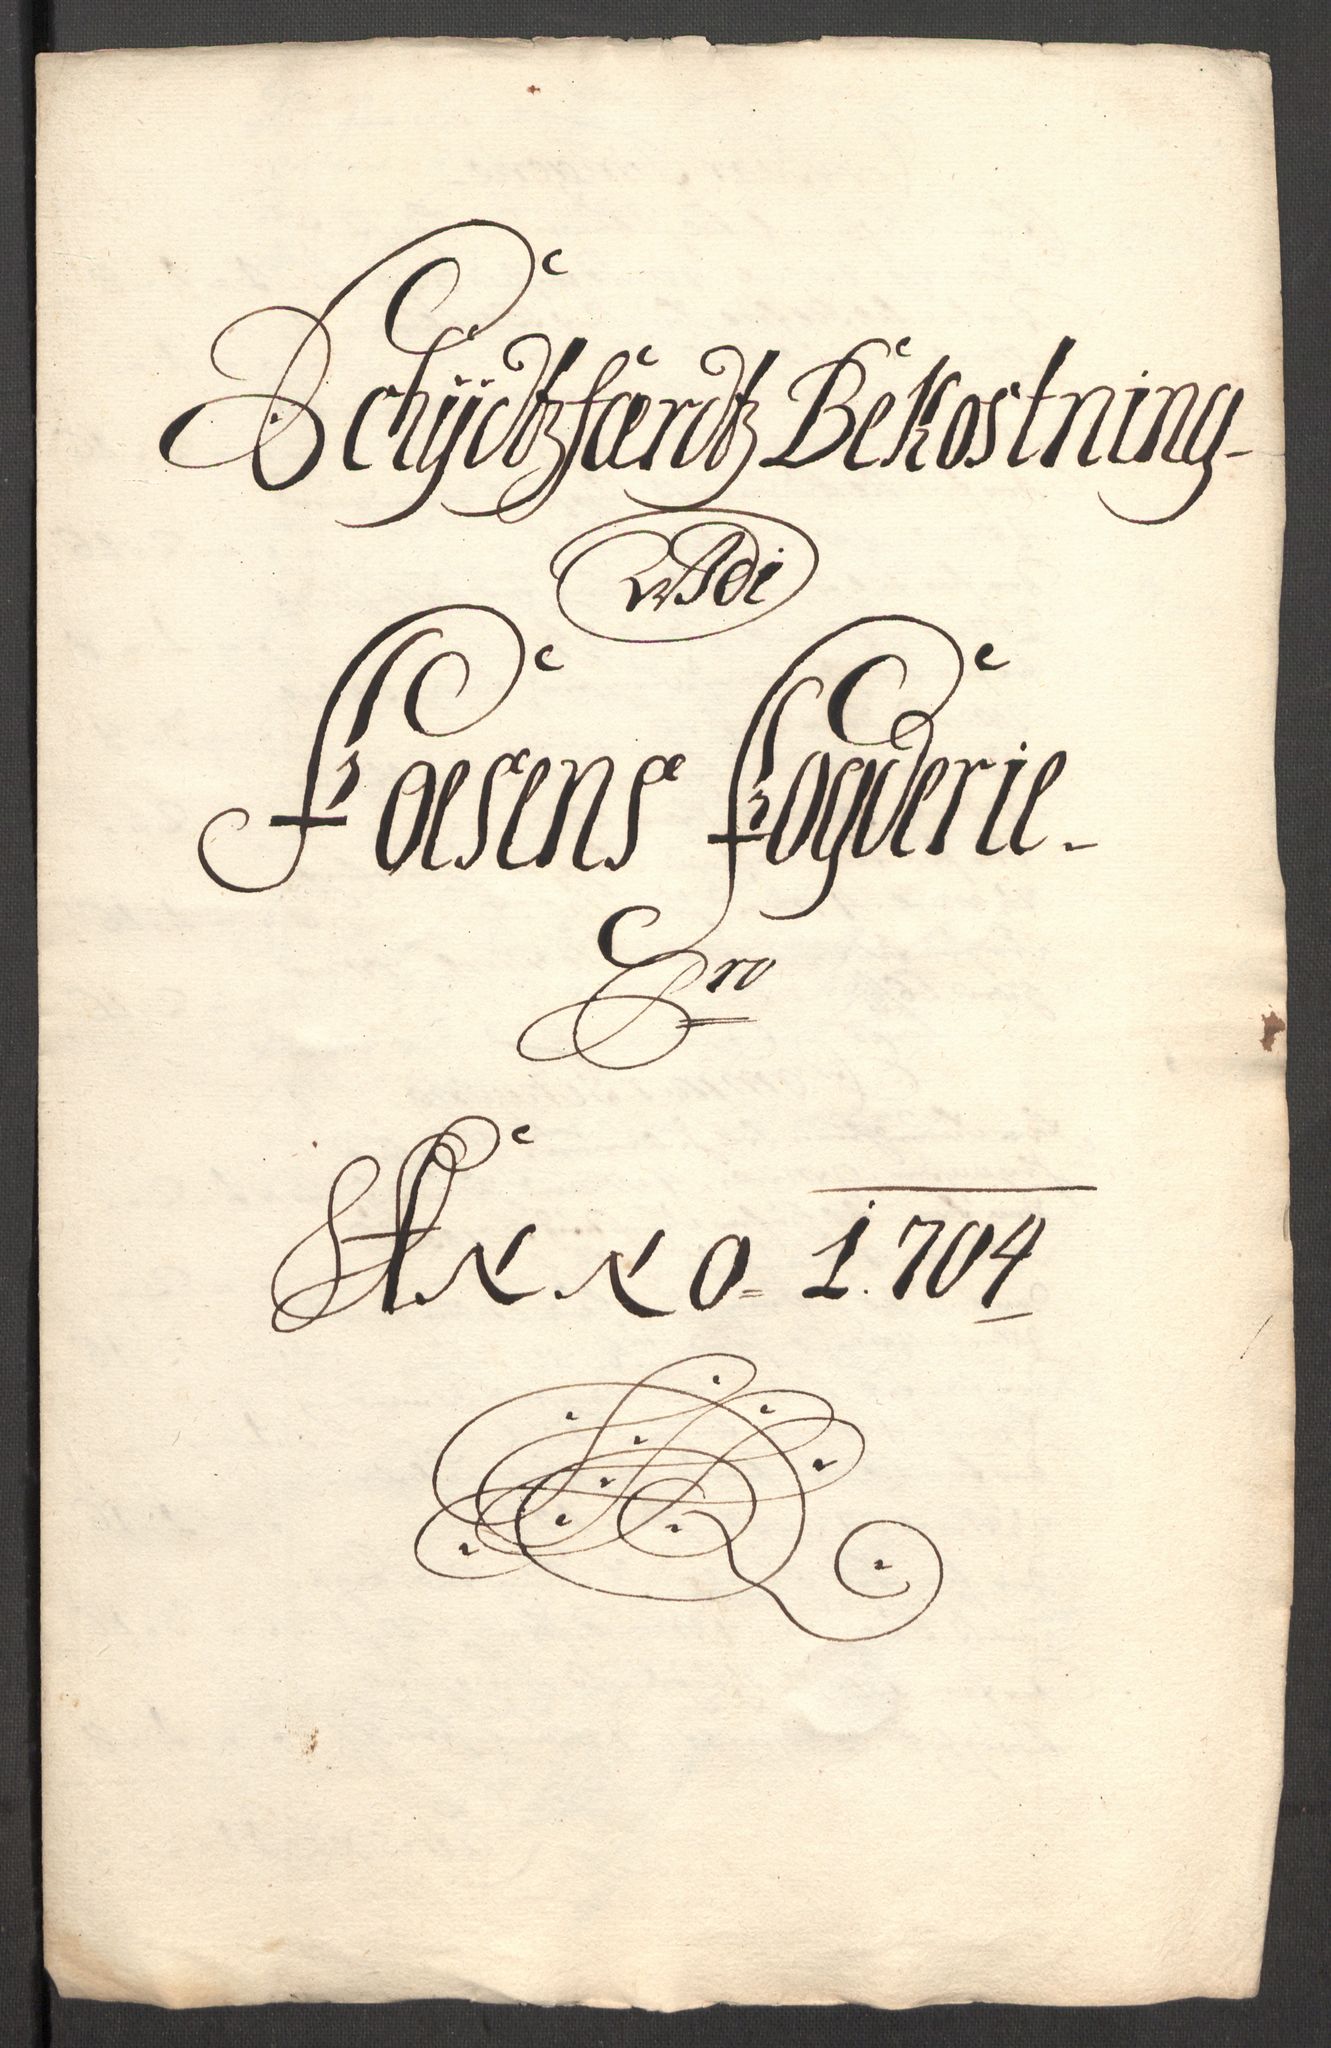 Schÿdtzfærdtz Bekostning
udi
Foesens Fogderie
Pro
Anno 1704